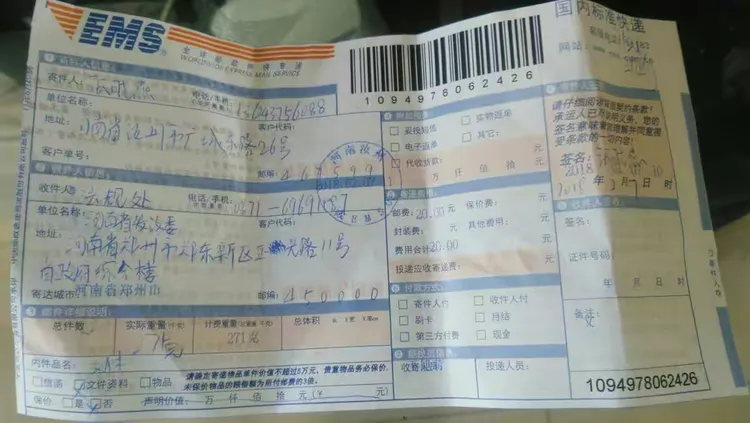 EMS
全球邮政特快专递
WORLDWIDE EXPRESS MAIL SERVICE
1094978062426
国内标准快递
网站:
寄件人信息:
寄件人:
电话/手机:
单位名称:
客户代码:
地址: 河南省汝州市 城东路26号
客户单号:
邮编:
收件人信息:
收件人: 法规处
电话/手机: 0371-69691887
单位名称: 河南省发改委
客户代码:
地址: 河南省郑州市郑东新区正光路11号
省政府综合楼
寄达城市: 河南省郑州市
邮编: 450000
邮件详细说明:
总件数
实际重量
计费重量
总体积
长 宽 高
75克
271克
内件品名:
信函
文件资料
物品
请确定寄递物品单件价值不超过5万元,贵重物品务必保价。
未保价物品的赔偿额为所付邮费的3倍。
保价: 是 否 声明价值: 万 仟 佰 拾 元 (¥ 元)
附加服务:
妥投短信
实物返单
电子返单
其它:
代收货款:
万 仟 佰 拾 元
邮费: 20.00 元 保价费: 元
封装费: 元 其他费用: 元
费用合计20.00 元
投递应收寄递费: 元
付款方式:
寄件人付
收件人付
刷卡
月结
第三方付费
现金
投递人员:
请仔细阅读背面的条款!
签名意味着您理解并同意接受条款的一切内容!
签名:
2018 年 2 月 7 日 时
签名:
证件号码:
年 月 日 时
备注:
1094978062426